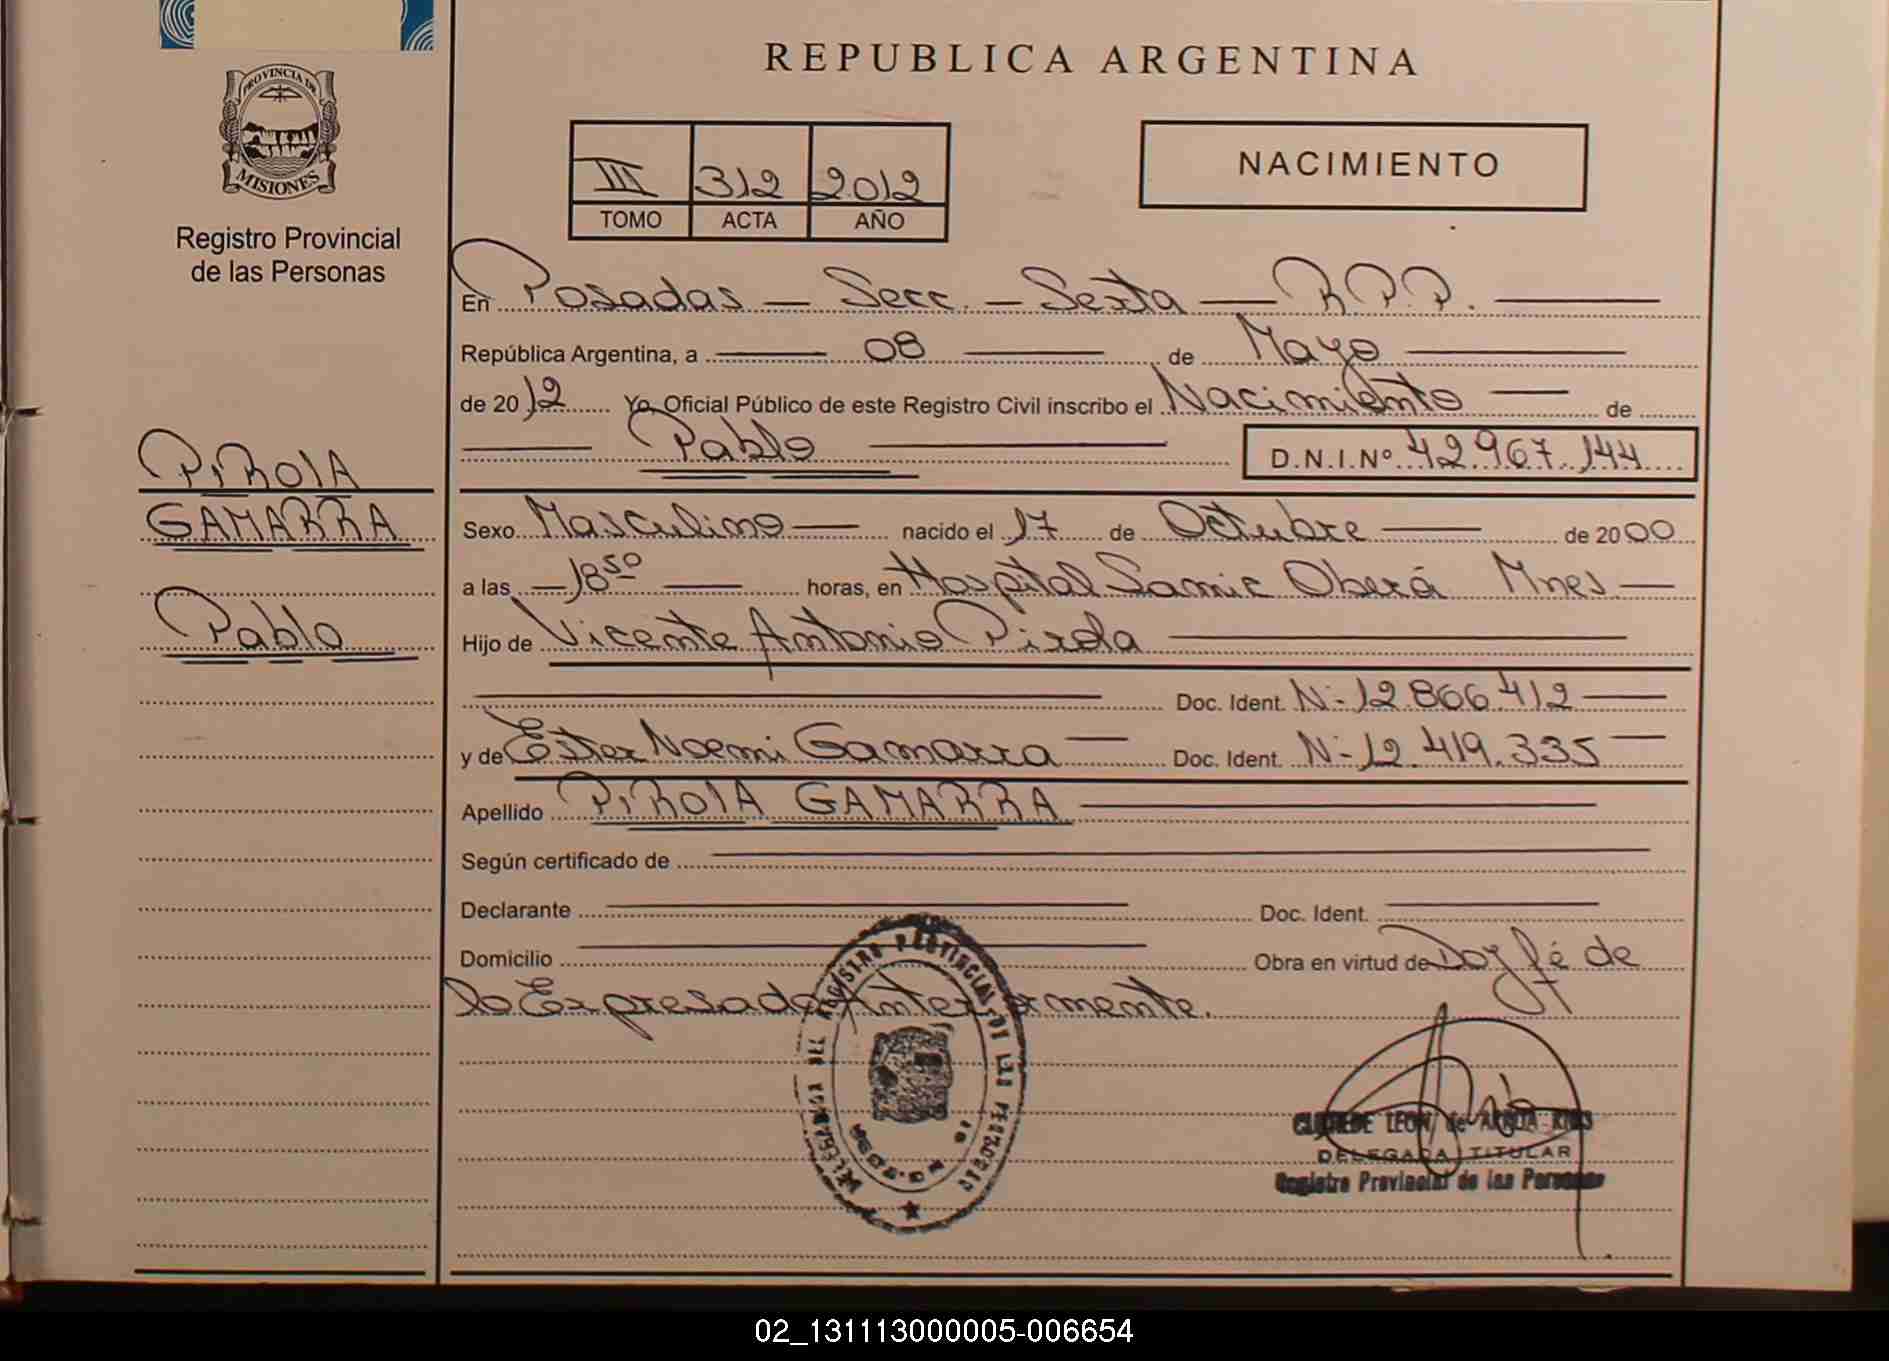 REPUBLICA ARGENTINA
PROVINCIA DE
MISIONES
Registro Provincial
de las Personas
III 312 2012
TOMO ACTA AÑO
NACIMIENTO
En Posadas — Secc. — Sexta — R.P.P. —
República Argentina, a — 08 — de Mayo —
de 2012 Yo, Oficial Público de este Registro Civil inscribo el Nacimiento — de
— Pablo — D.N.I.Nº 42.967.144
PIROlA
GAMARRA
Pablo
Sexo Masculino — nacido el 17 de Octubre — de 2000
a las — 18 50 — horas, en Hospital Samic Oberá Mnes —
Hijo de Vicente Antonio Pirola —
— Doc. Ident. Nº 12.866.412 —
y de Ester Noemi Gamarra — Doc. Ident. Nº 12.419.335 —
Apellido PIROlA GAMARRA —
Según certificado de —
Declarante — Doc. Ident. —
Domicilio — Obra en virtud de Doy fé de
lo Expresado Anteriormente.
DELEGACION DEL REGISTRO PROVINCIAL DE LAS PERSONAS
LEON de
DELEGADA TITULAR
Registro Provincial de las Personas
02_131113000005-006654